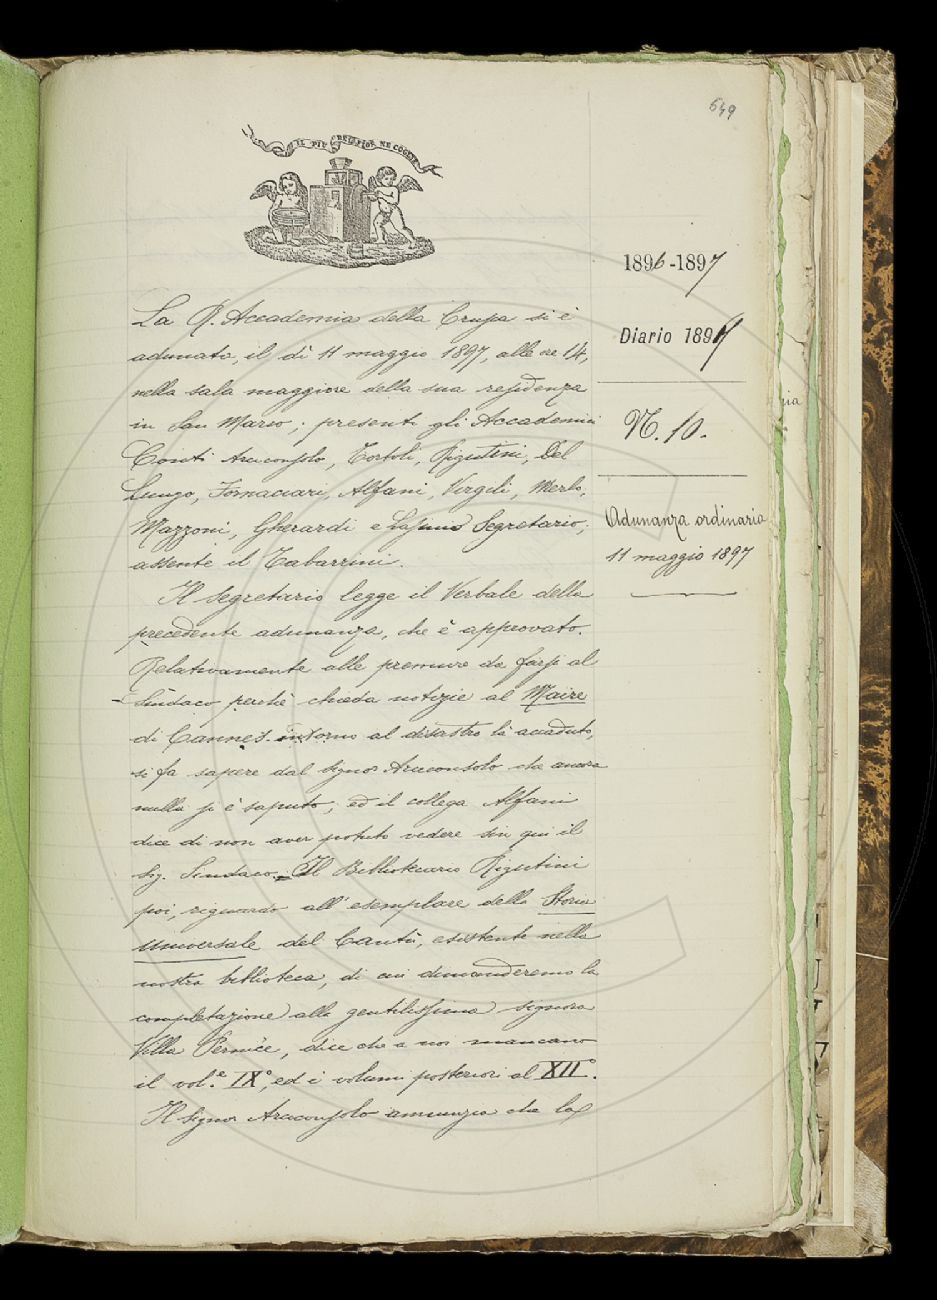 649
IL PIÙ BEL FIOR NE COGLIE
1896-1897
Diario 1897
N. 10.
Adunanza ordinaria
11 maggio 1897
La R. Accademia della Crusca si è
adunata, il dì 11 maggio 1897, alle ore 14,
nella sala maggiore della sua residenza
in San Marco; presenti gli Accademici
Conti Arciconsolo, Tortoli, Rigutini, Del
Lungo, Fornaciari, Alfani, Virgili, Merlo,
Mazzoni, Gherardi e Segretario;
assente il Tabarrini.
Il Segretario legge il Verbale della
precedente adunanza, che è approvato.
Relativamente alle premure da farsi al
Sindaco perchè chieda notizie al Maire
di Cannes intorno al disastro là accaduto,
si fa sapere dal signor Arciconsolo che ancora
nulla si è saputo; ed il collega Alfani
dice di non aver potuto vedere sin qui il
Sig. Sindaco. Il Bibliotecario Rigutini
poi, riguardo all'esemplare della Storia
Universale del Cantù, esistente nella
nostra biblioteca, di cui dimanderemo la
completazione alla gentilissima signora
Villa Pernice, dice che a noi mancano
il vol.e IX°, ed i volumi posteriori al XII°.
Il signor Arciconsolo annunzia che la